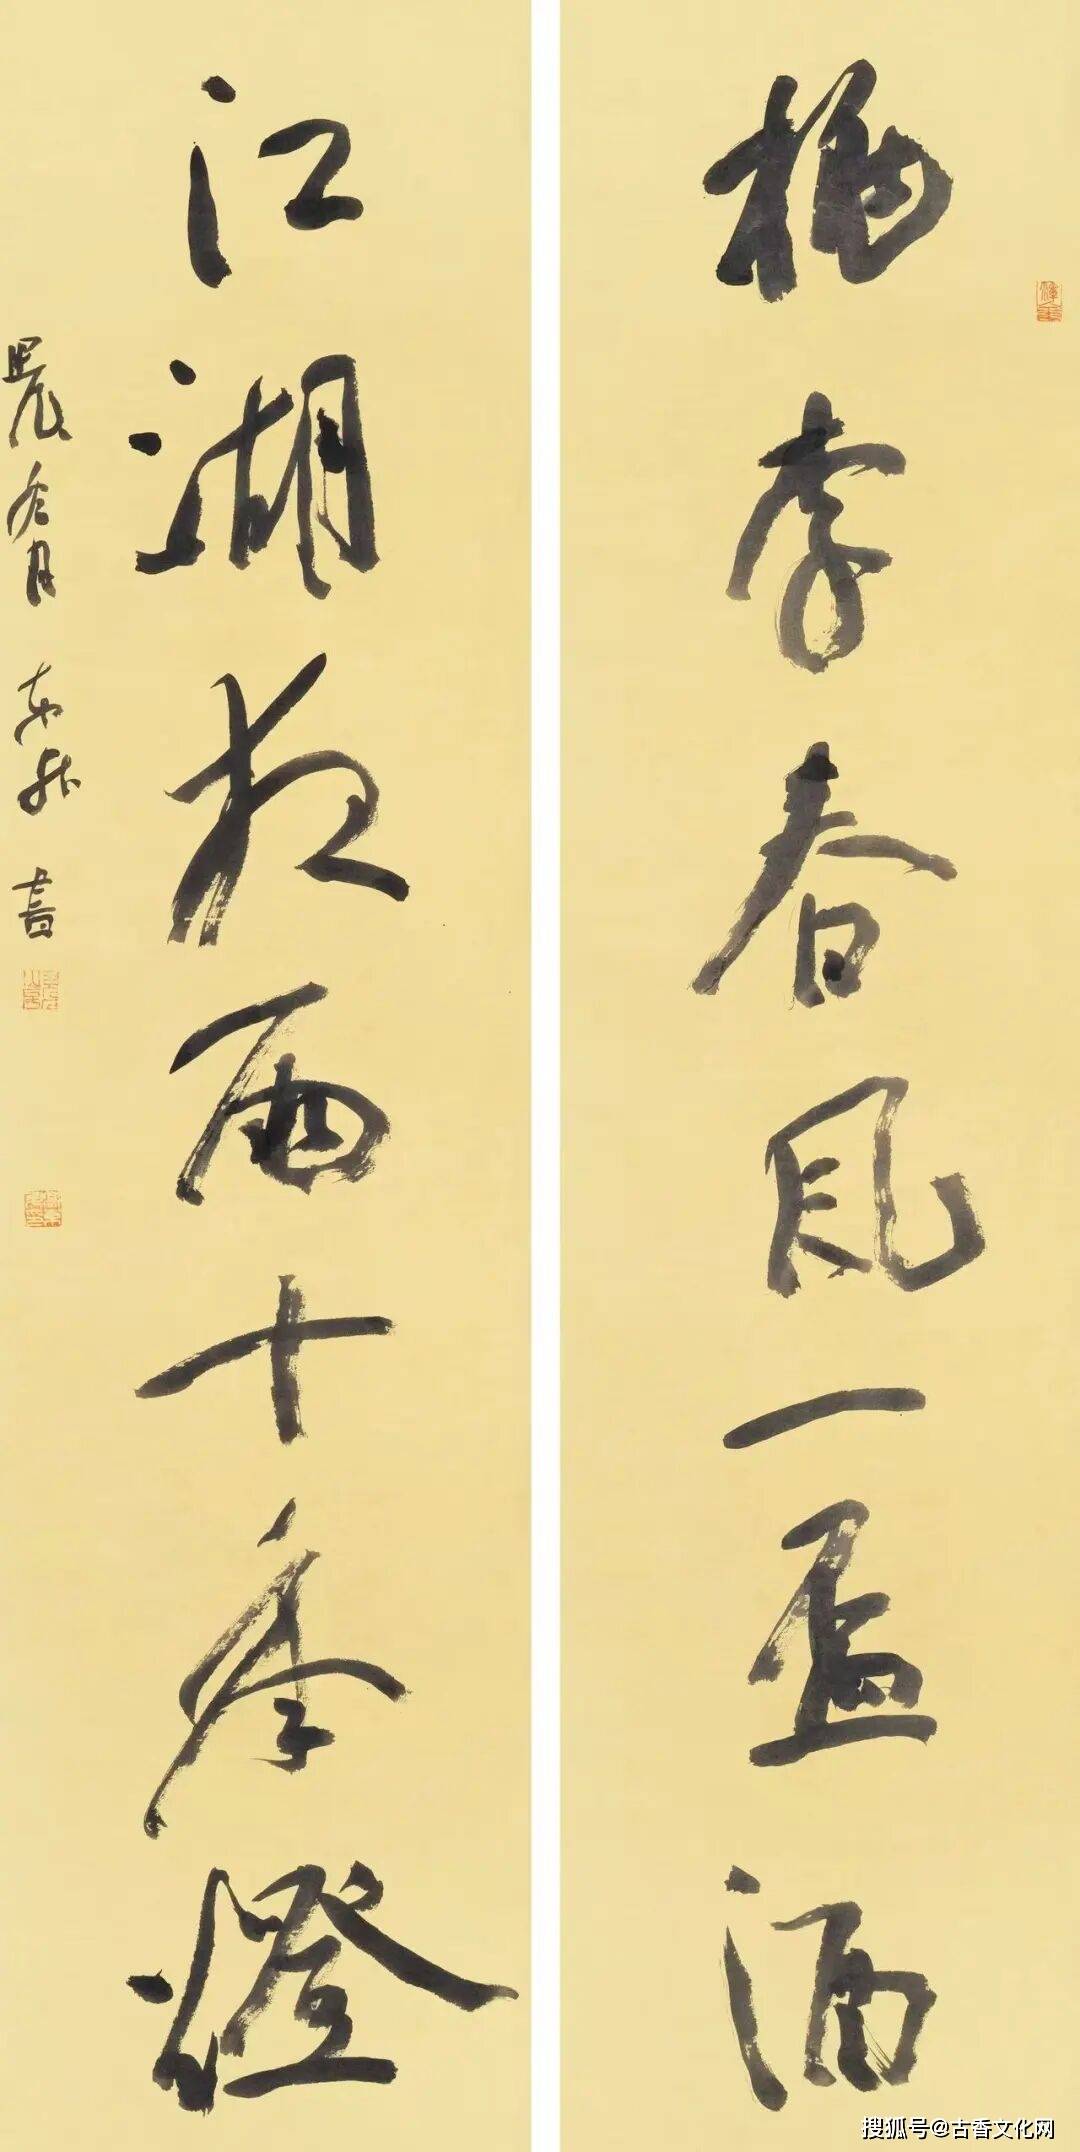 桃李春风一盃酒
江湖夜雨十年燈
書
搜狐号@古香文化网